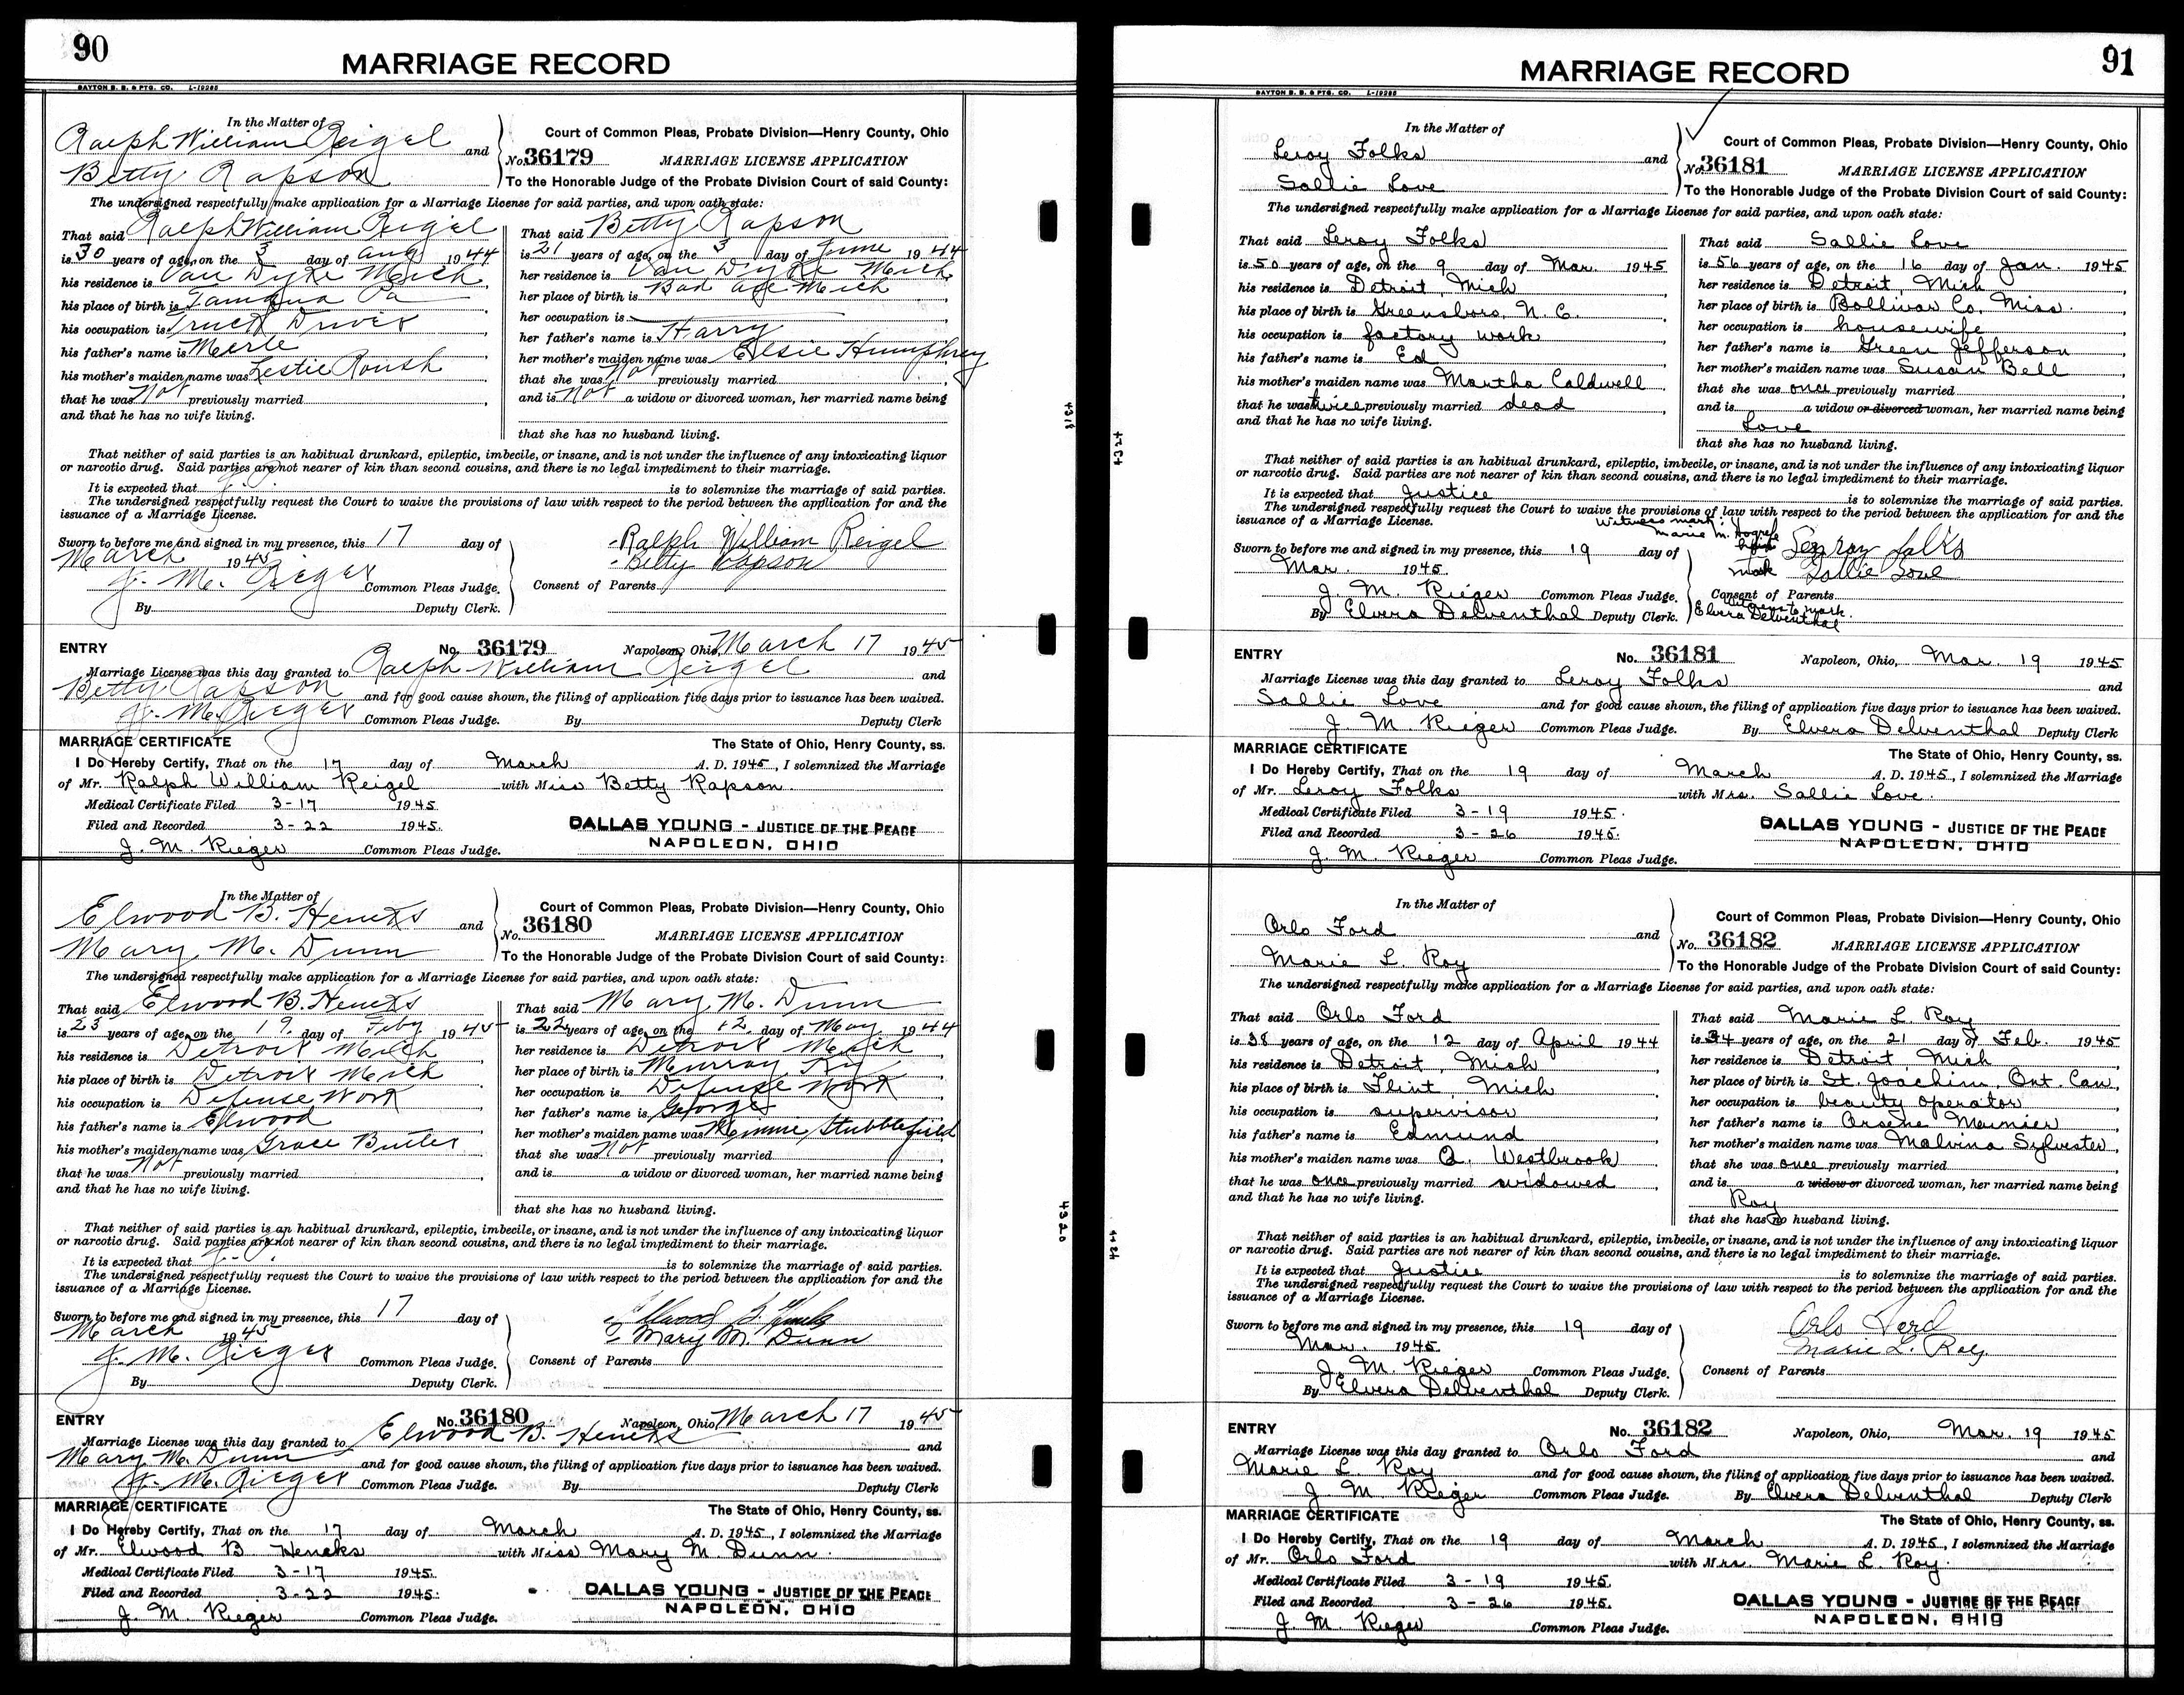 90
MARRIAGE RECORD
DAYTON B. B. & PTG. CO. L-19288
In the Matter of
Ralph William Reigel and
Betty Rapson
Court of Common Pleas, Probate Division—Henry County, Ohio
No. 36179 MARRIAGE LICENSE APPLICATION
To the Honorable Judge of the Probate Division Court of said County:
The undersigned respectfully make application for a Marriage License for said parties, and upon oath state:
That said Ralph William Reigel
is 30 years of age, on the 3 day of Aug 1944
his residence is Van Dyke Mich
his place of birth is Tamaqua Pa
his occupation is Truck Driver
his father's name is Merle
his mother's maiden name was Roush
that he was Not previously married
and that he has no wife living.
That said Betty Rapson
is 21 years of age, on the 3 day of June 1944
her residence is Van Dyke Mich
her place of birth is Bad Axe Mich
her occupation is
her father's name is Harry
her mother's maiden name was Elsie Humphrey
that she was Not previously married
and is Not a widow or divorced woman, her married name being
that she has no husband living.
That neither of said parties is an habitual drunkard, epileptic, imbecile, or insane, and is not under the influence of any intoxicating liquor
or narcotic drug. Said parties are not nearer of kin than second cousins, and there is no legal impediment to their marriage.
It is expected that J. P. is to solemnize the marriage of said parties.
The undersigned respectfully request the Court to waive the provisions of law with respect to the period between the application for and the
issuance of a Marriage License.
Sworn to before me and signed in my presence, this 17 day of
March 1945
J. M. Rieger Common Pleas Judge.
By Deputy Clerk.
Ralph William Reigel
Betty Rapson
Consent of Parents
ENTRY No. 36179 Napoleon, Ohio, March 17 1945
Marriage License was this day granted to Ralph William Reigel and
Betty Rapson and for good cause shown, the filing of application five days prior to issuance has been waived.
J. M. Rieger Common Pleas Judge. By Deputy Clerk
MARRIAGE CERTIFICATE The State of Ohio, Henry County, ss.
I Do Hereby Certify, That on the 17 day of March A. D. 1945, I solemnized the Marriage
of Mr. Ralph William Reigel with Miss Betty Rapson.
Medical Certificate Filed 3-17 1945
Filed and Recorded 3-22 1945.
DALLAS YOUNG - JUSTICE OF THE PEACE
NAPOLEON, OHIO
J. M. Rieger Common Pleas Judge.
4318
In the Matter of
Elwood B. Hencks and
Mary M. Dunn
Court of Common Pleas, Probate Division—Henry County, Ohio
No. 36180 MARRIAGE LICENSE APPLICATION
To the Honorable Judge of the Probate Division Court of said County:
The undersigned respectfully make application for a Marriage License for said parties, and upon oath state:
That said Elwood B. Hencks
is 23 years of age, on the 19 day of Feby 1945
his residence is Detroit Mich
his place of birth is Detroit Mich
his occupation is Defense Work
his father's name is Elwood
his mother's maiden name was Grace Butler
that he was Not previously married
and that he has no wife living.
That said Mary M. Dunn
is 22 years of age, on the 12 day of May 1944
her residence is Detroit Mich
her place of birth is Murray Ky
her occupation is Defense Work
her father's name is George
her mother's maiden name was Stubblefield
that she was Not previously married
and is a widow or divorced woman, her married name being
that she has no husband living.
That neither of said parties is an habitual drunkard, epileptic, imbecile, or insane, and is not under the influence of any intoxicating liquor
or narcotic drug. Said parties are not nearer of kin than second cousins, and there is no legal impediment to their marriage.
It is expected that J. P. is to solemnize the marriage of said parties.
The undersigned respectfully request the Court to waive the provisions of law with respect to the period between the application for and the
issuance of a Marriage License.
Sworn to before me and signed in my presence, this 17 day of
March 1945
J. M. Rieger Common Pleas Judge.
By Deputy Clerk.
Elwood B. Hencks
Mary M. Dunn
Consent of Parents
ENTRY No. 36180 Napoleon, Ohio March 17 1945
Marriage License was this day granted to Elwood B. Hencks and
Mary M. Dunn and for good cause shown, the filing of application five days prior to issuance has been waived.
J. M. Rieger Common Pleas Judge. By Deputy Clerk
MARRIAGE CERTIFICATE The State of Ohio, Henry County, ss.
I Do Hereby Certify, That on the 17 day of March A. D. 1945, I solemnized the Marriage
of Mr. Elwood B Hencks with Miss Mary M. Dunn.
Medical Certificate Filed 3-17 1945.
Filed and Recorded 3-22 1945.
DALLAS YOUNG - JUSTICE OF THE PEACE
NAPOLEON, OHIO
J. M. Rieger Common Pleas Judge.
4320
91
MARRIAGE RECORD
DAYTON B. B. & PTG. CO. L-19288
In the Matter of
Leroy Folks and
Sallie Love
Court of Common Pleas, Probate Division—Henry County, Ohio
No. 36181 MARRIAGE LICENSE APPLICATION
To the Honorable Judge of the Probate Division Court of said County:
The undersigned respectfully make application for a Marriage License for said parties, and upon oath state:
That said Leroy Folks
is 50 years of age, on the 9 day of Mar. 1945
his residence is Detroit, Mich
his place of birth is Greensboro, N. C.
his occupation is factory work
his father's name is Ed
his mother's maiden name was Martha Caldwell
that he was twice previously married dead
and that he has no wife living.
That said Sallie Love
is 56 years of age, on the 16 day of Jan. 1945
her residence is Detroit, Mich
her place of birth is Bollivar Co. Miss.
her occupation is housewife
her father's name is Green Jefferson
her mother's maiden name was Susan Bell
that she was once previously married
and is a widow or divorced woman, her married name being
Love
that she has no husband living.
That neither of said parties is an habitual drunkard, epileptic, imbecile, or insane, and is not under the influence of any intoxicating liquor
or narcotic drug. Said parties are not nearer of kin than second cousins, and there is no legal impediment to their marriage.
It is expected that Justice is to solemnize the marriage of said parties.
The undersigned respectfully request the Court to waive the provisions of law with respect to the period between the application for and the
issuance of a Marriage License.
Witness mark:
Marie M. Hogrefe
Sworn to before me and signed in my presence, this 19 day of
Mar. 1945.
J. M. Rieger Common Pleas Judge.
By Elvera Delventhal Deputy Clerk.
mark Sallie Love
Consent of Parents
Witness to mark.
Elvera Delventhal
ENTRY No. 36181 Napoleon, Ohio, Mar 19 1945
Marriage License was this day granted to Leroy Folks and
Sallie Love and for good cause shown, the filing of application five days prior to issuance has been waived.
J. M. Rieger Common Pleas Judge. By Elvera Delventhal Deputy Clerk
MARRIAGE CERTIFICATE The State of Ohio, Henry County, ss.
I Do Hereby Certify, That on the 19 day of March A. D. 1945, I solemnized the Marriage
of Mr. Leroy Folks with Mrs. Sallie Love.
Medical Certificate Filed 3-19 1945.
Filed and Recorded 3-26 1945.
DALLAS YOUNG - JUSTICE OF THE PEACE
NAPOLEON, OHIO
J. M. Rieger Common Pleas Judge.
In the Matter of
Orlo Ford and
Marie L. Roy
Court of Common Pleas, Probate Division—Henry County, Ohio
No. 36182 MARRIAGE LICENSE APPLICATION
To the Honorable Judge of the Probate Division Court of said County:
The undersigned respectfully make application for a Marriage License for said parties, and upon oath state:
That said Orlo Ford
is 38 years of age, on the 12 day of April 1944
his residence is Detroit, Mich
his place of birth is Flint, Mich
his occupation is supervisor
his father's name is Edmund
his mother's maiden name was Q. Westbrook
that he was once previously married widowed
and that he has no wife living.
That said Marie L Roy
is 34 years of age, on the 21 day of Feb. 1945
her residence is Detroit, Mich
her place of birth is St. Joachim, Ont. Can.
her occupation is beauty operator
her father's name is Arsene Meunier
her mother's maiden name was Malvina Sylvester
that she was once previously married
and is a widow or divorced woman, her married name being
Roy
that she has no husband living.
That neither of said parties is an habitual drunkard, epileptic, imbecile, or insane, and is not under the influence of any intoxicating liquor
or narcotic drug. Said parties are not nearer of kin than second cousins, and there is no legal impediment to their marriage.
It is expected that Justice is to solemnize the marriage of said parties.
The undersigned respectfully request the Court to waive the provisions of law with respect to the period between the application for and the
issuance of a Marriage License.
Sworn to before me and signed in my presence, this 19 day of
Mar. 1945.
J. M. Rieger Common Pleas Judge.
By Elvera Delventhal Deputy Clerk.
Orlo Ford
Marie L. Roy
Consent of Parents
ENTRY No. 36182 Napoleon, Ohio, Mar. 19 1945
Marriage License was this day granted to Orlo Ford and
Marie L. Roy and for good cause shown, the filing of application five days prior to issuance has been waived.
J. M. Rieger Common Pleas Judge. By Elvera Delventhal Deputy Clerk
MARRIAGE CERTIFICATE The State of Ohio, Henry County, ss.
I Do Hereby Certify, That on the 19 day of March A. D. 1945, I solemnized the Marriage
of Mr. Orlo Ford with Mrs. Marie L. Roy.
Medical Certificate Filed 3-19 1945.
Filed and Recorded 3-26 1945.
DALLAS YOUNG - JUSTICE OF THE PEACE
NAPOLEON, OHIO
J. M. Rieger Common Pleas Judge.